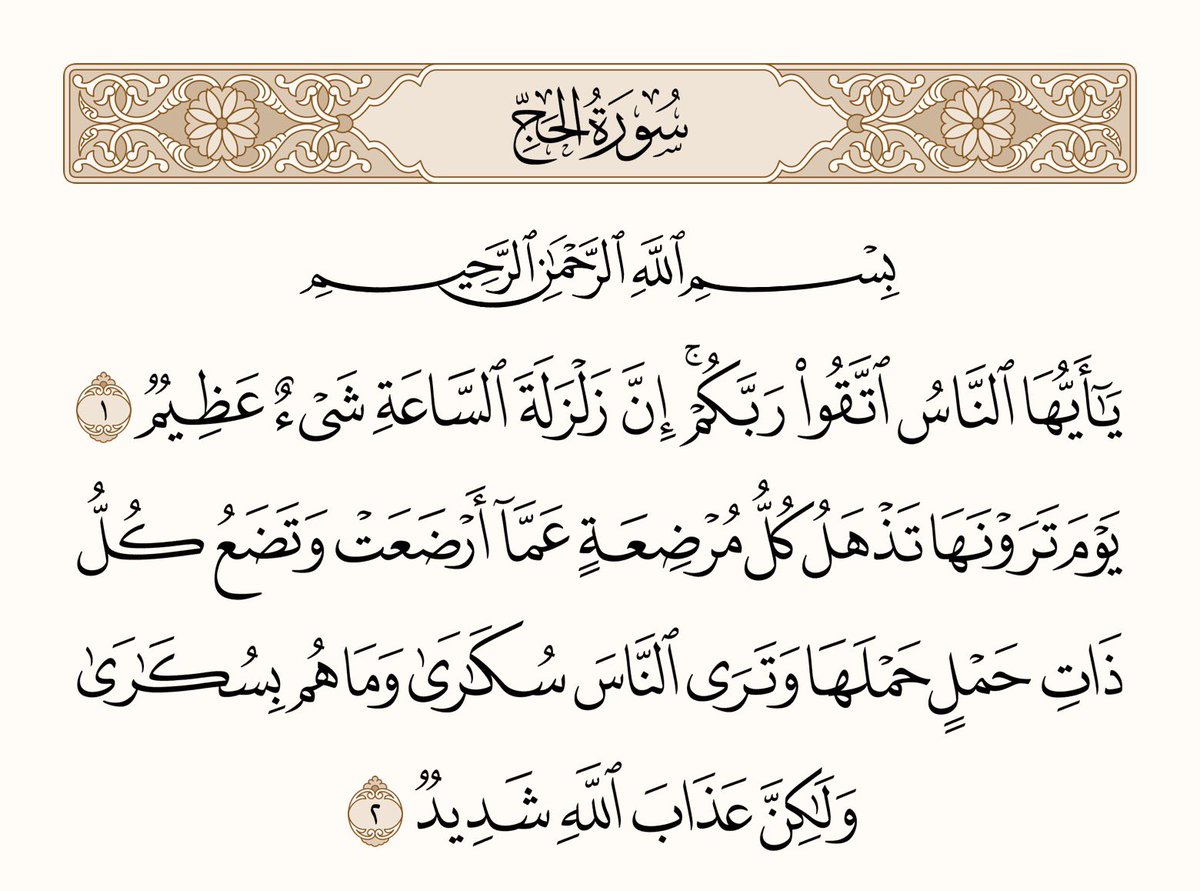 سُورَةُ الحَجِّ
بِسْمِ ٱللَّهِ ٱلرَّحْمَٰنِ ٱلرَّحِيمِ
يَٰٓأَيُّهَا ٱلنَّاسُ ٱتَّقُوا۟ رَبَّكُمْ ۚ إِنَّ زَلْزَلَةَ ٱلسَّاعَةِ شَىْءٌ عَظِيمٌ ١
يَوْمَ تَرَوْنَهَا تَذْهَلُ كُلُّ مُرْضِعَةٍ عَمَّآ أَرْضَعَتْ وَتَضَعُ كُلُّ
ذَاتِ حَمْلٍ حَمْلَهَا وَتَرَى ٱلنَّاسَ سُكَٰرَىٰ وَمَا هُم بِسُكَٰرَىٰ
وَلَٰكِنَّ عَذَابَ ٱللَّهِ شَدِيدٌ ٢